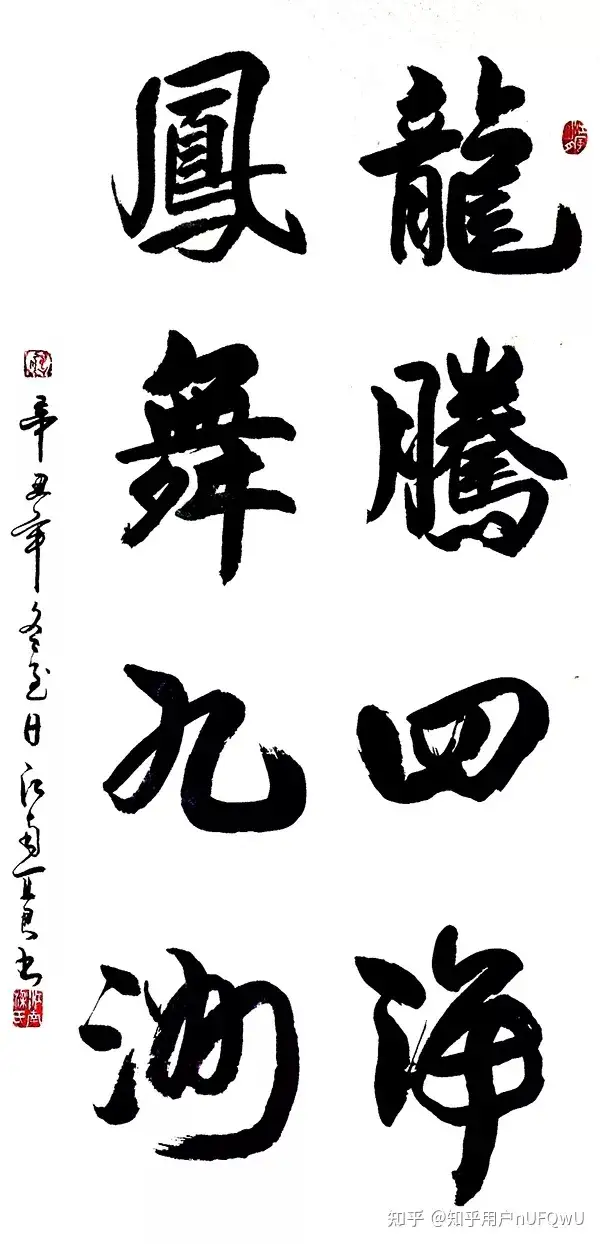 龍騰四海
鳳舞九洲
辛丑年冬至日江南書
知乎 @知乎用户nUFQwU